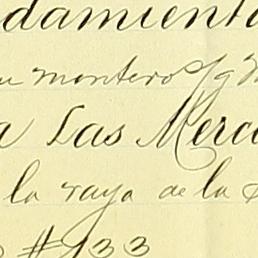 damiento
montero
Las Merc
la raya de la
#133